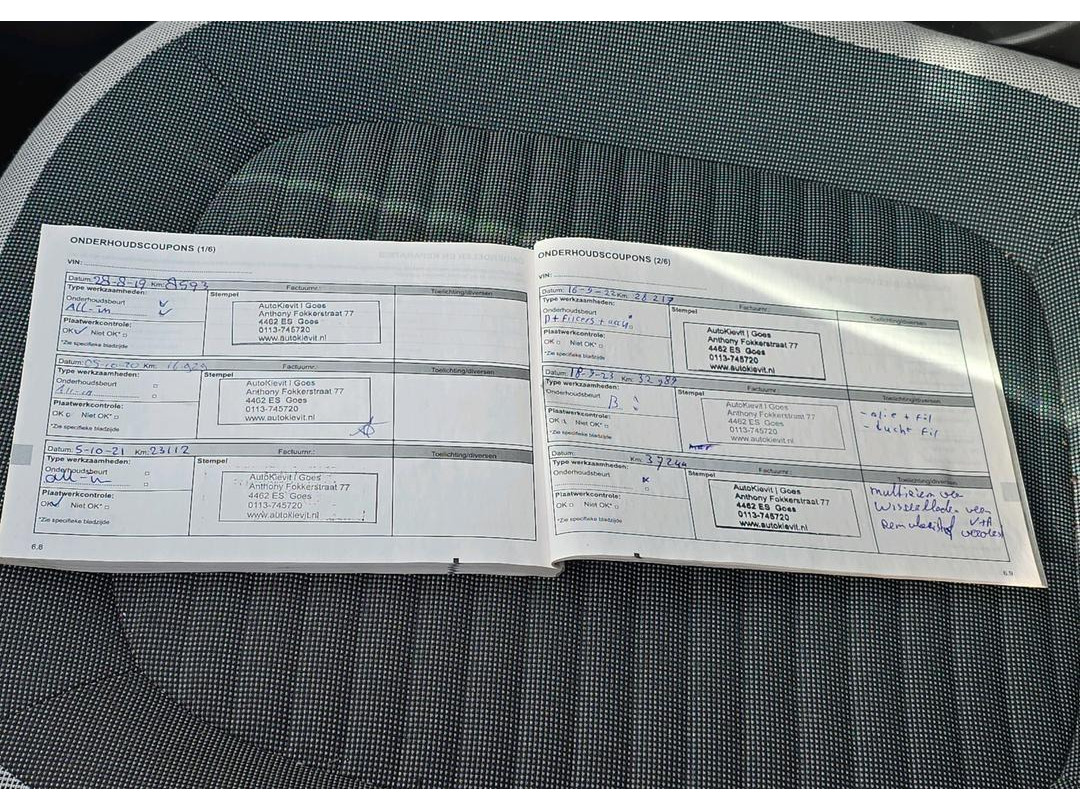 ONDERHOUDSCOUPONS (1/6)
VIN:
Datum: 28-8-19 Km: 8593 Factuurnr.: Toelichting/diversen
Type werkzaamheden: Stempel
Onderhoudsbeurt
ALL-in
Plaatwerkcontrole:
OK Niet OK*
*Zie specifieke bladzijde
AutoKievit | Goes
Anthony Fokkerstraat 77
4462 ES Goes
0113-745720
www.autokievit.nl
Datum: 05-10-20 Km: Factuurnr.: Toelichting/diversen
Type werkzaamheden: Stempel
Onderhoudsbeurt
All-in
Plaatwerkcontrole:
OK Niet OK*
*Zie specifieke bladzijde
AutoKievit | Goes
Anthony Fokkerstraat 77
4462 ES Goes
0113-745720
www.autokievit.nl
Datum: 5-10-21 Km: 23112 Factuurnr.: Toelichting/diversen
Type werkzaamheden: Stempel
Onderhoudsbeurt
all-in
Plaatwerkcontrole:
OK Niet OK*
*Zie specifieke bladzijde
AutoKievit | Goes
Anthony Fokkerstraat 77
4462 ES Goes
0113-745720
www.autokievit.nl
6.8
ONDERHOUDSCOUPONS (2/6)
VIN:
Datum: 16-9-22 Km: 28217 Factuurnr.: Toelichting/diversen
Type werkzaamheden: Stempel
Onderhoudsbeurt
Plaatwerkcontrole:
OK Niet OK*
*Zie specifieke bladzijde
AutoKievit | Goes
Anthony Fokkerstraat 77
4462 ES Goes
0113-745720
www.autokievit.nl
Datum: 18-9-23 Km: 32989 Factuurnr.: Toelichting/diversen
Type werkzaamheden: Stempel
Onderhoudsbeurt
B
Plaatwerkcontrole:
OK Niet OK*
*Zie specifieke bladzijde
AutoKievit | Goes
Anthony Fokkerstraat 77
4462 ES Goes
0113-745720
www.autokievit.nl
- olie + fil
- lucht fil
Datum: Km: 37244 Factuurnr.: Toelichting/diversen
Type werkzaamheden: Stempel
Onderhoudsbeurt
Plaatwerkcontrole:
OK Niet OK*
*Zie specifieke bladzijde
AutoKievit | Goes
Anthony Fokkerstraat 77
4462 ES Goes
0113-745720
www.autokievit.nl
multiriem ver
Wisserbladen ver
V+A
Remvloeistof
6.9